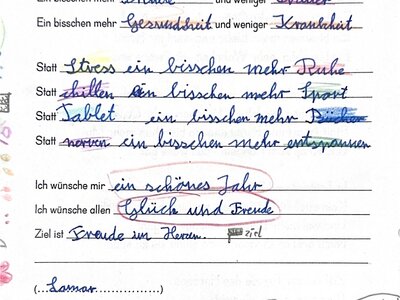 Ein bisschen mehr und weniger
Ein bisschen mehr Gesundheit und weniger Krankheit
Statt Stress ein bisschen mehr Ruhe
Statt chillen ein bisschen mehr Sport
Statt Tablet ein bisschen mehr Bücher
Statt nerven ein bisschen mehr entspannen
Ich wünsche mir ein schönes Jahr
Ich wünsche allen Glück und Freude
Ziel ist Freude im Herzen. ziel
(...Lamar................)